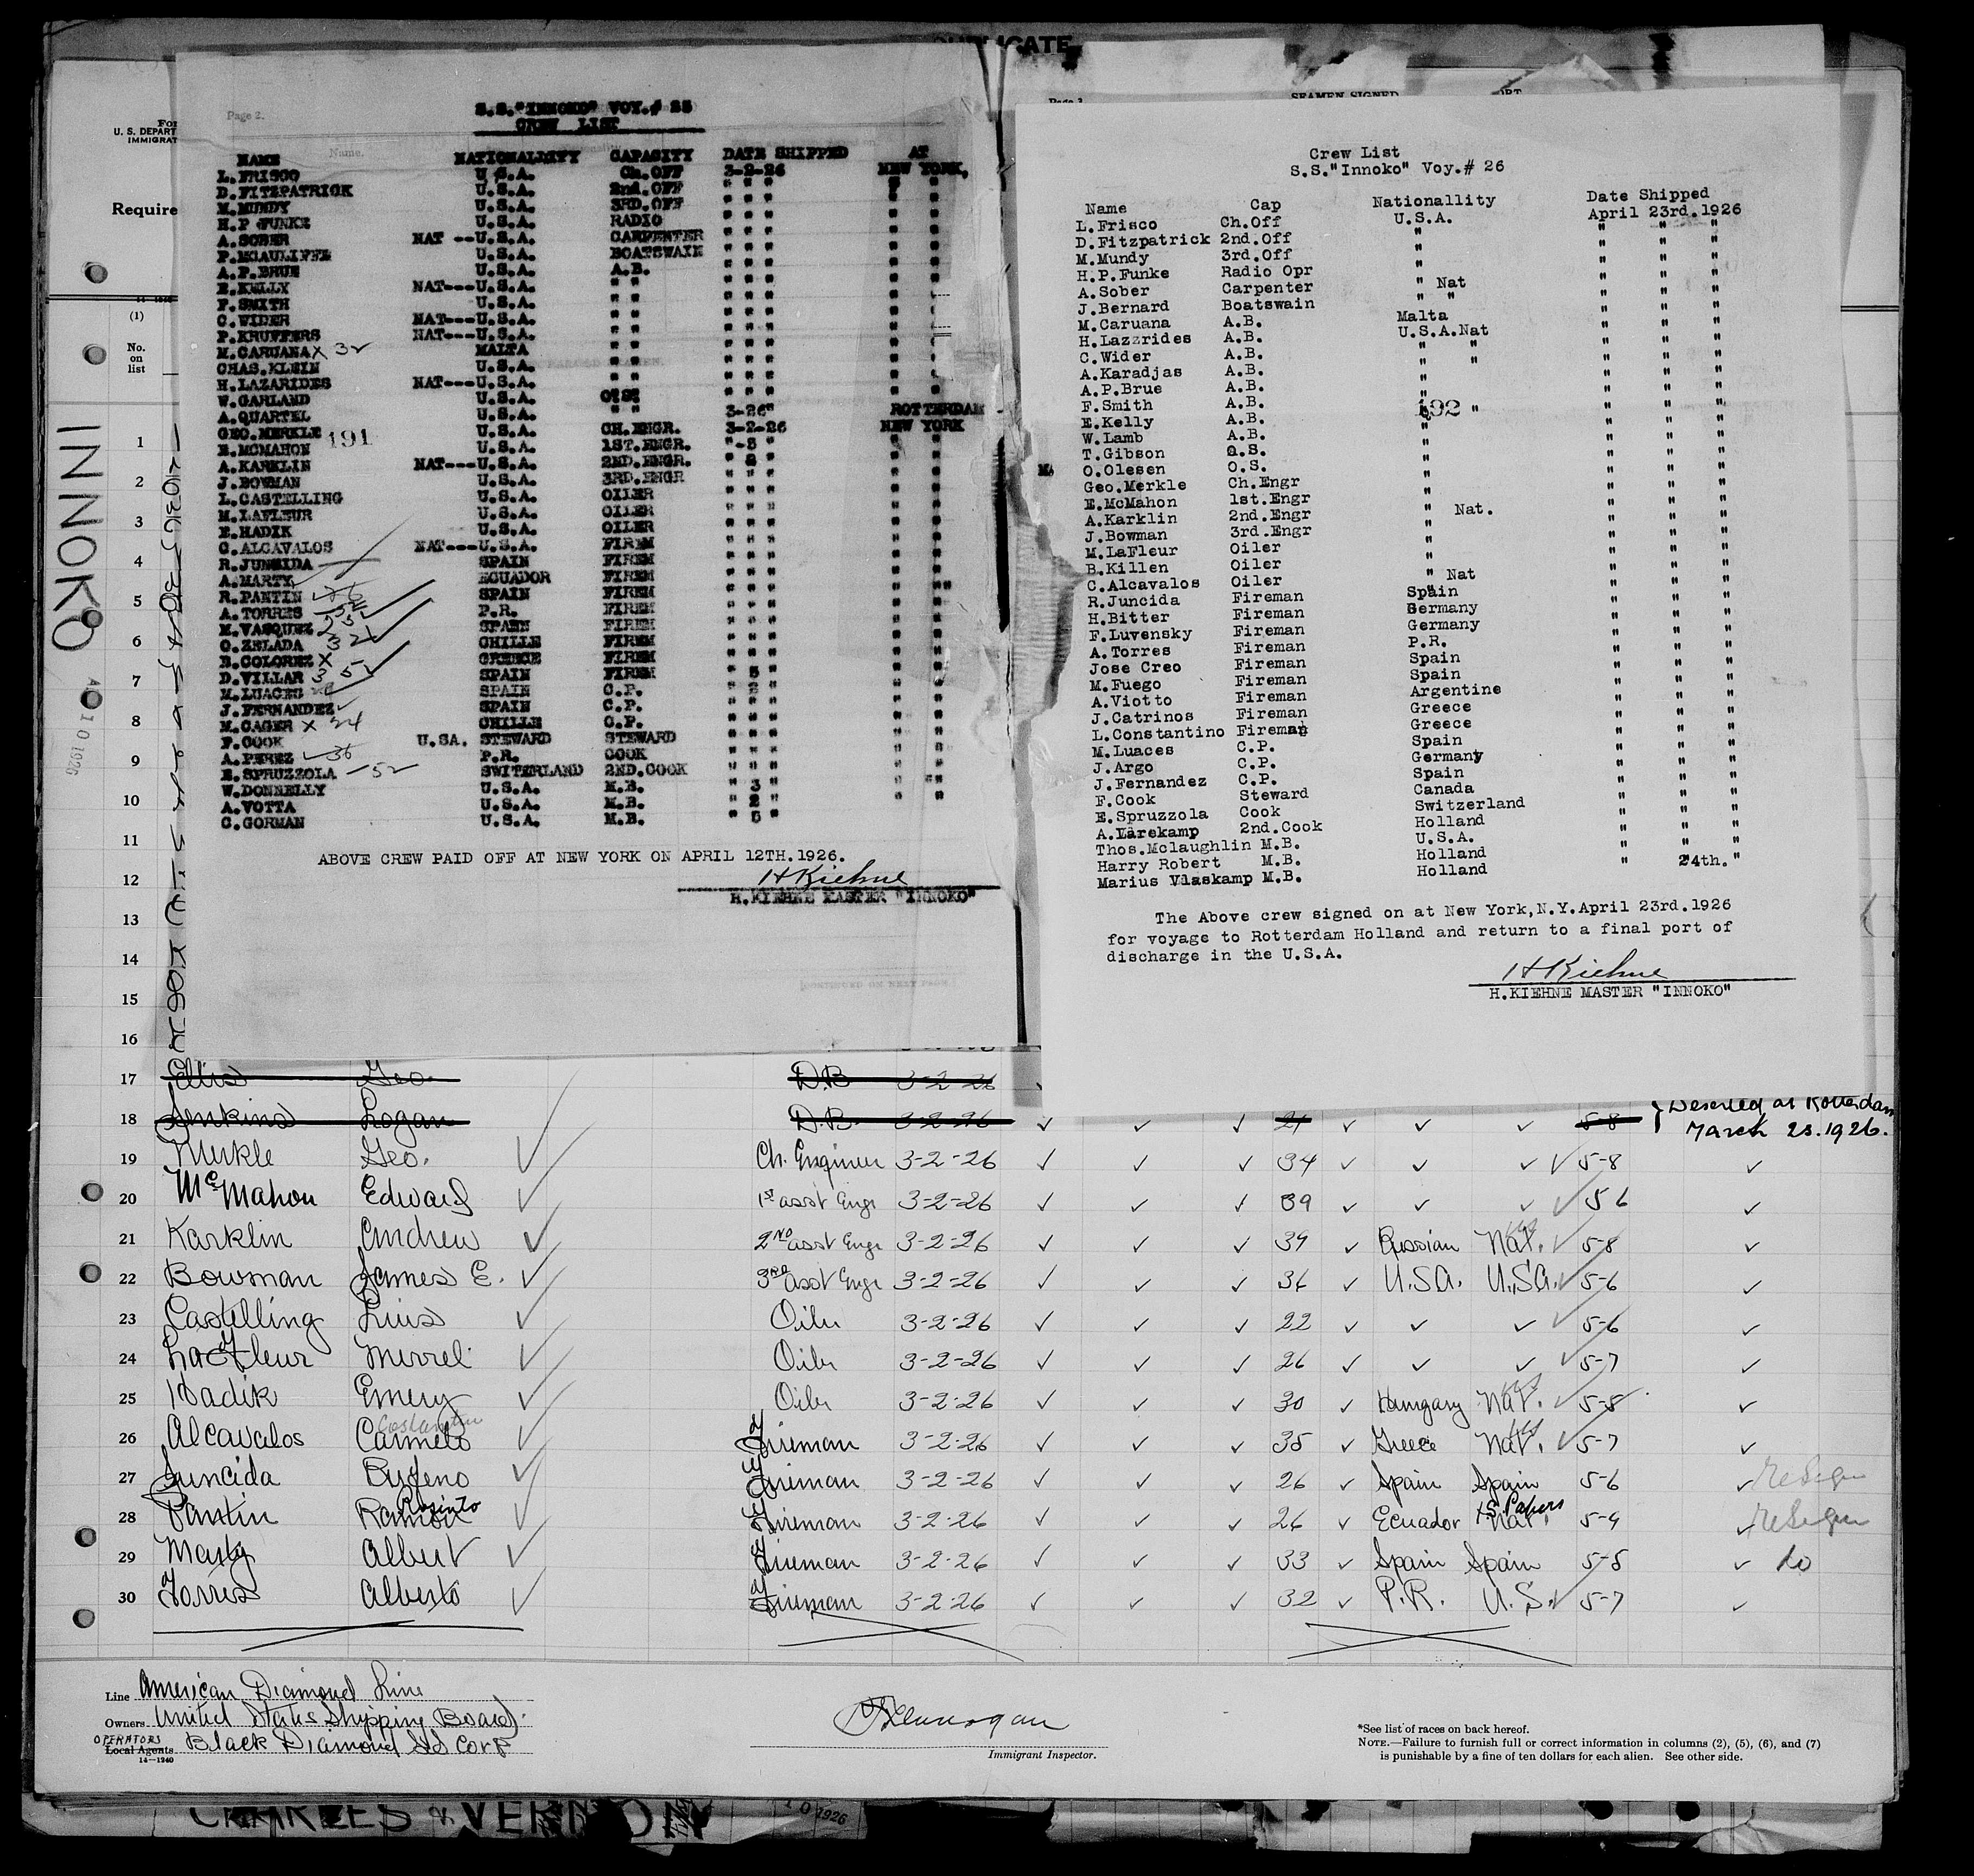 DUPLICATE
Page 2.
S.S."INNOKO" VOY.# 25
CREW LIST
NAME NATIONALITY CAPACITY DATE SHIPPED AT
L.FRISCO U.S.A. Ch.OFF 3-2-26 NEW YORK,
D.FITZPATRICK U.S.A. 2nd.OFF " " " " "
M.MUNDY U.S.A. 3RD.OFF " " " " "
H.P FUNKE U.S.A. RADIO " " " " "
A.SOBER NAT --U.S.A. CARPENTER " " " " "
P.MCAULIFFE U.S.A. BOATSWAIN " " " " "
A.P.BRUE U.S.A. A.B. " " " " "
E.KELLY NAT---U.S.A. " " " " " " "
F.SMITH U.S.A. " " " " " " "
C.WIDER NAT---U.S.A. " " " " " " "
P.KRUFFERS NAT---U.S.A. " " " " " " "
M.CARUANA X 32 MALTA " " " " " " "
CHAS.KLEIN U.S.A. " " " " " " "
H.LAZARIDES NAT---U.S.A. " " " " " " "
W.GARLAND U.S.A. O.S. " " " " "
A.QUARTEL U.S.A. " " 3-26" ROTTERDAM
GEO.MERKLE 191 U.S.A. CH.ENGR. 3-2-26 NEW YORK
E.MCMAHON U.S.A. 1ST.ENGR. "-3 " " "
A.KARKLIN NAT---U.S.A. 2ND.ENGR. " 2 " " "
J.BOWMAN U.S.A. 3RD.ENGR " " " " "
L.CASTELLING U.S.A. OILER " " " " "
M.LAFLEUR U.S.A. OILER " " " " "
E.HADIK U.S.A. OILER " " " " "
C.ALCAVALOS NAT---U.S.A. FIREM " " " " "
R.JUNCIDA SPAIN FIREM " " " " "
A.MARTY ECUADOR FIREM " " " " "
R.PANTIN SPAIN FIREM " " " " "
A.TORRES P.R. FIREM " " " " "
M.VASQUEZ SPAIN FIREM " " " " "
C.ZELADA 32 CHILLE FIREM " " " " "
B.COLOREZ X GREECE FIREM " " " " "
D.VILLAR 35 SPAIN FIREM " 5 " " "
M.LUACES SPAIN C.P. " 2 " " "
J.FERNANDEZ SPAIN C.P. " " " " "
M.CAGER X 24 CHILLE C.P. " " " " "
F.COOK U.SA. STEWARD STEWARD " " " " "
A.PEREZ 36 P.R. COOK " " " " "
E.SPRUZZOLA 52 SWITERLAND 2ND.COOK " " " " "
W.DONNELLY U.S.A. M.B. " 3 " " "
A.VOTTA U.S.A. M.B. " 2 "
C.GORMAN U.S.A. M.B. " 5 "
ABOVE CREW PAID OFF AT NEW YORK ON APRIL 12TH.1926.
H Kiehne
H.KIEHNE MASTER "INNOKO"
Crew List
S.S."Innoko" Voy.# 26
Name Cap Nationallity Date Shipped
L.Frisco Ch.Off U.S.A. April 23rd.1926
D.Fitzpatrick 2nd.Off " " " "
M.Mundy 3rd.Off " " " "
H.P.Funke Radio Opr " " " "
A.Sober Carpenter " Nat " " "
J.Bernard Boatswain " " " " "
M.Caruana A.B. Malta " " "
H.Lazzrides A.B. U.S.A.Nat " " "
C.Wider A.B. " " " " "
A.Karadjas A.B. " " " " "
A.P.Brue A.B. " " " "
F.Smith A.B. " " " "
E.Kelly A.B. 192 " " " "
W.Lamb A.B. " " " "
T.Gibson O.S. " " " "
O.Olesen O.S. " " " "
Geo.Merkle Ch.Engr " " " "
E.McMahon 1st.Engr " " " "
A.Karklin 2nd.Engr " Nat. " " "
J.Bowman 3rd.Engr " " " "
M.LaFleur Oiler " " " "
B.Killen Oiler " " " "
C.Alcavalos Oiler " Nat " " "
R.Juncida Fireman Spain " " "
H.Bitter Fireman Germany " " "
F.Luvensky Fireman Germany " " "
A.Torres Fireman P.R. " " "
Jose Creo Fireman Spain " " "
M.Fuego Fireman Spain " " "
A.Viotto Fireman Argentine " " "
J.Catrinos Fireman Greece " " "
L.Constantino Fireman Greece " " "
M.Luaces C.P. Spain " " "
J.Argo C.P. Germany " " "
J.Fernandez C.P. Spain " " "
F.Cook Steward Canada " " "
E.Spruzzola Cook Switzerland " " "
A.Larekamp 2nd.Cook Holland " " "
Thos.Mclaughlin M.B. U.S.A. " " "
Harry Robert M.B. Holland " 24th. "
Marius Vlaskamp M.B. Holland
The Above crew signed on at New York,N.Y.April 23rd.1926
for voyage to Rotterdam Holland and return to a final port of
discharge in the U.S.A.
H Kiehne
H.KIEHNE MASTER "INNOKO"
U. S. DEPART
IMMIGRAT
Require
(1)
No.
on
list
INNOKO
1
2
3
4
5
6
7
8
9
10
11
12
13
14
15
16
17 Ellis Geo. D.B 3-2-26
18 Jenkins Logan D.B. 3-2-26 21 5-8 Deserted at Rotterdam
March 23.1926.
19 Merkle Geo. Ch. Engineer 3-2-26 34 5-8
20 McMahon Edward 1st asst Engr 3-2-26 39 5 6
21 Karklin Andrew 2ND asst Engr 3-2-26 39 Russian Nat. 5-8
22 Bowman James E. 3RD asst Engr 3-2-26 36 U.S.A. U.S.A. 5-6
23 Castelling Luis Oiler 3-2-26 22 5-6
24 LaFleur Merrel Oiler 3-2-26 26 5-7
25 Hadik Emery Oiler 3-2-26 30 Hungary Nat. 5-8
26 Alcavalos Carmelo Fireman 3-2-26 35 Greece Nat. 5-7
27 Juncida Fireman 3-2-26 26 Spain Spain 5-6
28 Pantin Ramon Fireman 3-2-26 26 Ecuador Nat. 5-9
29 Marty Albert Fireman 3-2-26 33 Spain Spain 5-5 do
30 Torres Alberto Fireman 3-2-26 32 P.R. U.S. 5-7
Line American Diamond Line
Owners United States Shipping Board
OPERATORS
Local Agents Black Diamond SS Corp
14—1240
Immigrant Inspector.
*See list of races on back hereof.
NOTE.—Failure to furnish full or correct information in columns (2), (5), (6), and (7)
is punishable by a fine of ten dollars for each alien. See other side.
CHARLES & VERNON
10 1926